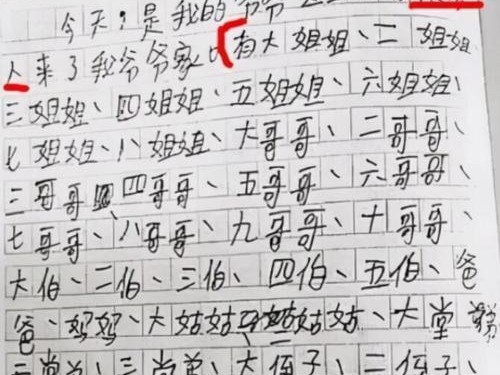 今天，是我的爷爷
人来了我爷爷家。有大姐姐、二姐姐、
三姐姐、四姐姐、五姐姐、六姐姐、
七姐姐、八姐姐、大哥哥、二哥哥、
三哥哥、四哥哥、五哥哥、六哥哥、
七哥哥、八哥哥、九哥哥、十哥哥、
大伯、二伯、三伯、四伯、五伯、爸
爸、妈妈、大姑姑、二姑姑、大堂弟
三堂弟、大侄子、二侄子、